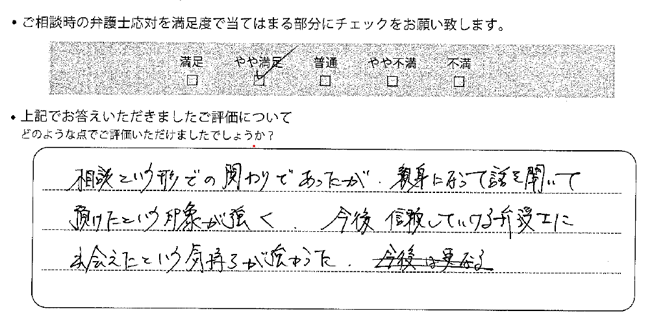 • ご相談時の弁護士応対を満足度で当てはまる部分にチェックをお願い致します。
満足 やや満足 普通 やや不満 不満
• 上記でお答えいただきましたご評価について
どのような点でご評価いただけましたでしょうか？
相談という形での関わりであったが、親身になって話を聞いて
頂けたという印象が強く、今後信頼していける弁護士に
出会えたという気持ちが強かった。今後は